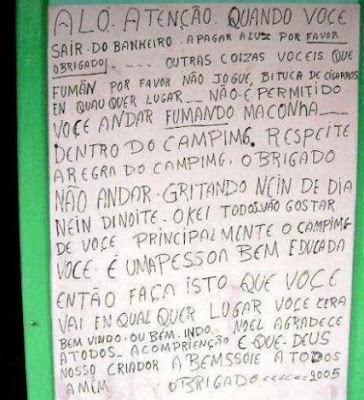 ALO. ATENÇÃO. QUANDO VOCE
SAÍR. DO BANHEIRO. APAGAR A LUZ POR FAVOR
OBRIGADO! - . - - . OUTRAS COIZAS VOCEIS QUE
FUMÁN POR FAVOR NÃO JOGUE, BITUCA DE CIGARROS
EN QUAU QUER LUGAR __ NÃO-É PERMITIDO
VOCE ANDAR FUMANDO MACONHA __
DENTRO DO CAMPIMG. RESPEITE
A REGRA DO CAMPIMG. OBRIGADO
NÃO ANDAR-GRITANDO NEIN DE DIA
NEIN DINOITE-OKEI TODOS.VÃO GOSTAR
DE VOCE PRINCIPALMENTE O CAMPIMG
VOCE-É UMAPESSOA BEM EDUCADA
ENTÃO FAÇA ISTO QUE VOCE
VAI EN QUAL QUER LUGAR VOCE CERA
BEM VINDO.OU BEM.INDO. NOEL AGRADECE
ATODOS-ACOMPRIENÇÃO E-QUE-DEUS
NOSSO CRIADOR A BEMSSOIE A TODOS
AMÉM OBRIGADO 2005